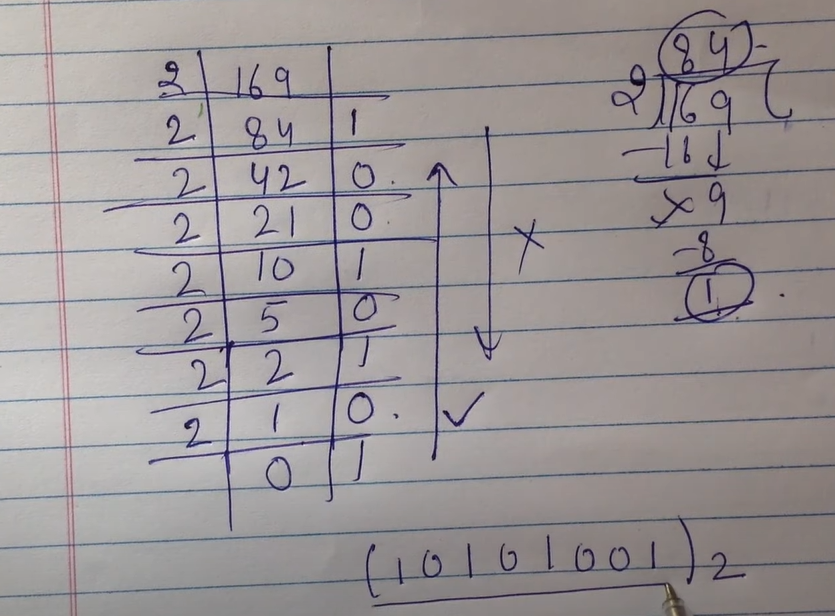 2 169
2 84 1
2 42 0.
2 21 0
2 10 1
2 5 0
2 2 1
2 1 0.
0 1
×
✓
84
2 169
-16↓
×9
-8
1.
(10101001)2